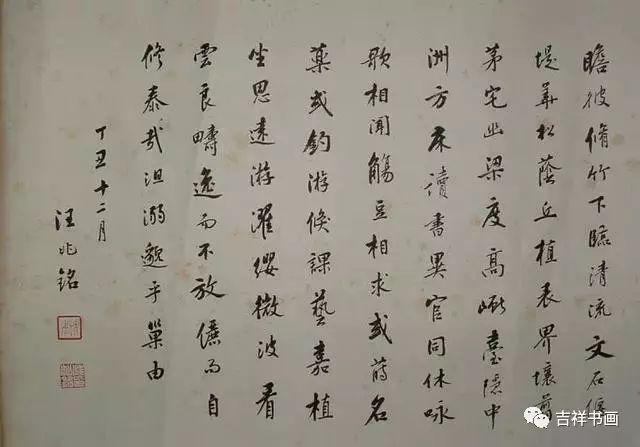 瞻彼脩竹下臨清流文石偃
堤華松蔭丘植表界壤剪
茅宅幽梁度高臺隱中
洲方床讀書異官同休咏
歌相聞觴豆相求或蒔名
藥或釣游課藝嘉植
坐思遠游濯纓微波看
雲良疇逸而不放儷而自
修泰哉沮溺邈乎巢由
丁丑十二月
汪兆銘
吉祥书画